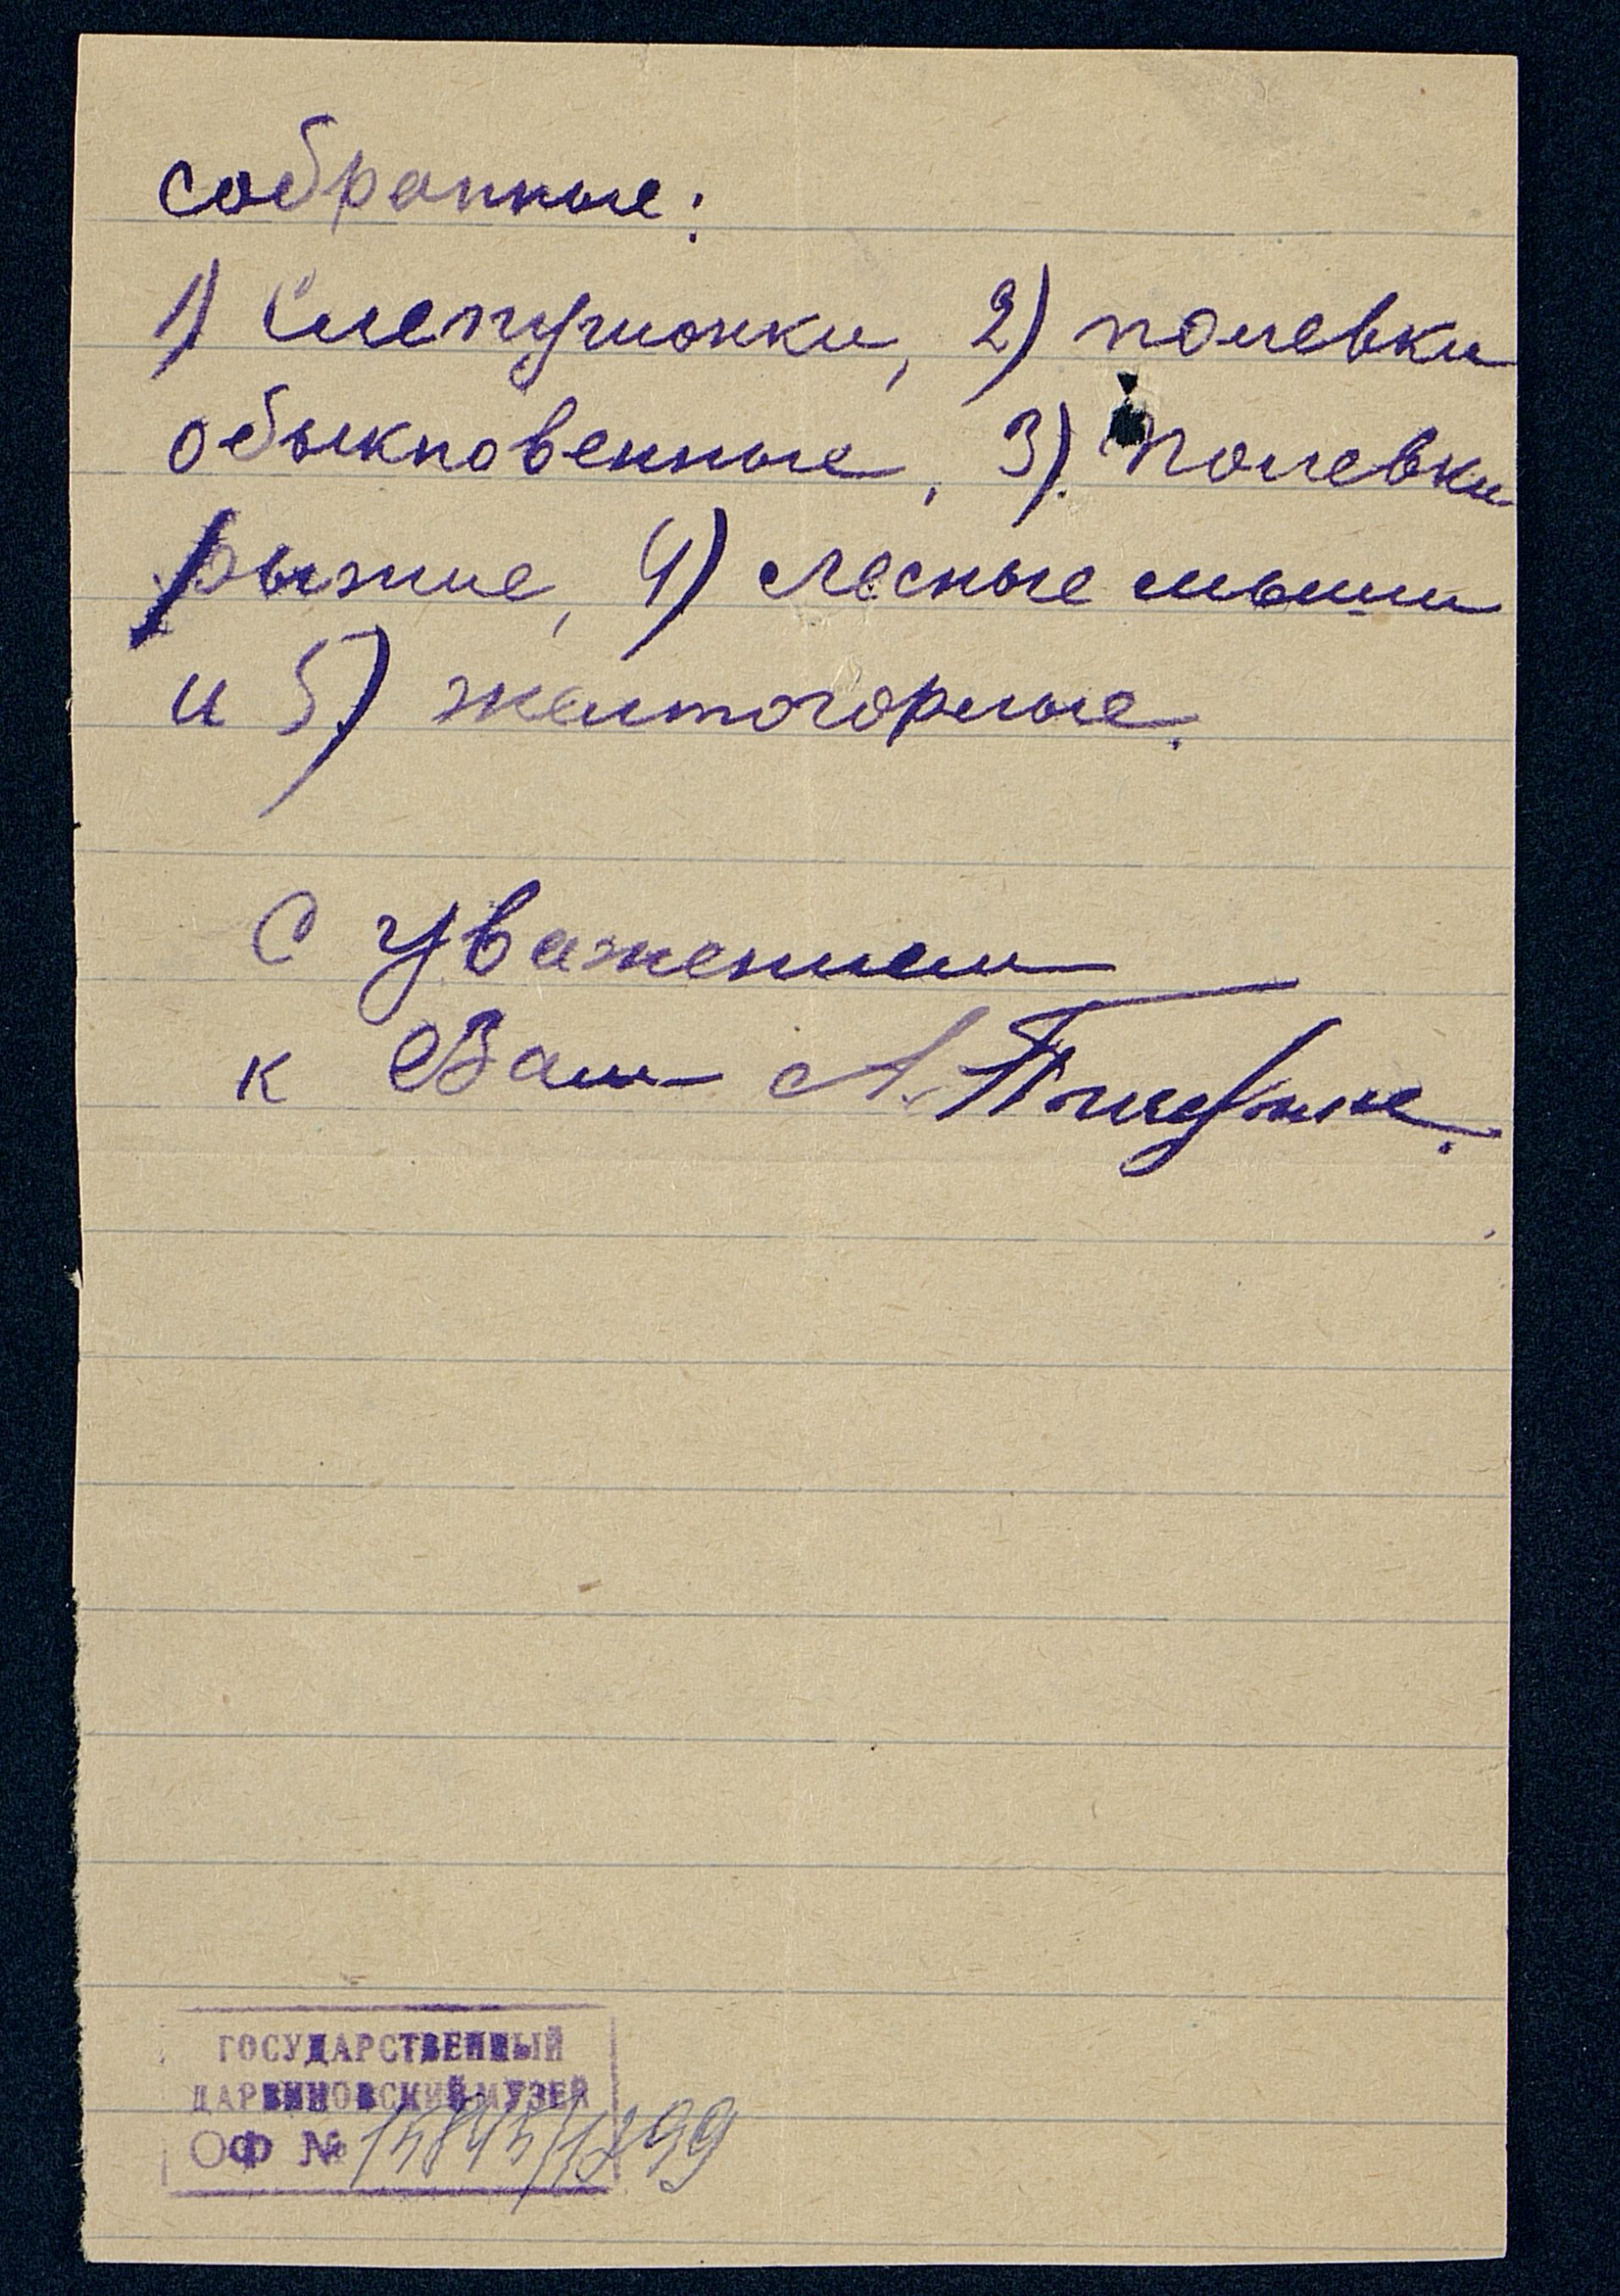 собранные:
1) Слепушонки, 2) полевки
обыкновенные, 3) Полевки
рыжие, 4) лесные мыши
и 5) желтогорлые.
С уважением
к Вам А.
ГОСУДАРСТВЕННЫЙ
ДАРВИНОВСКИЙ МУЗЕЙ
ОФ №